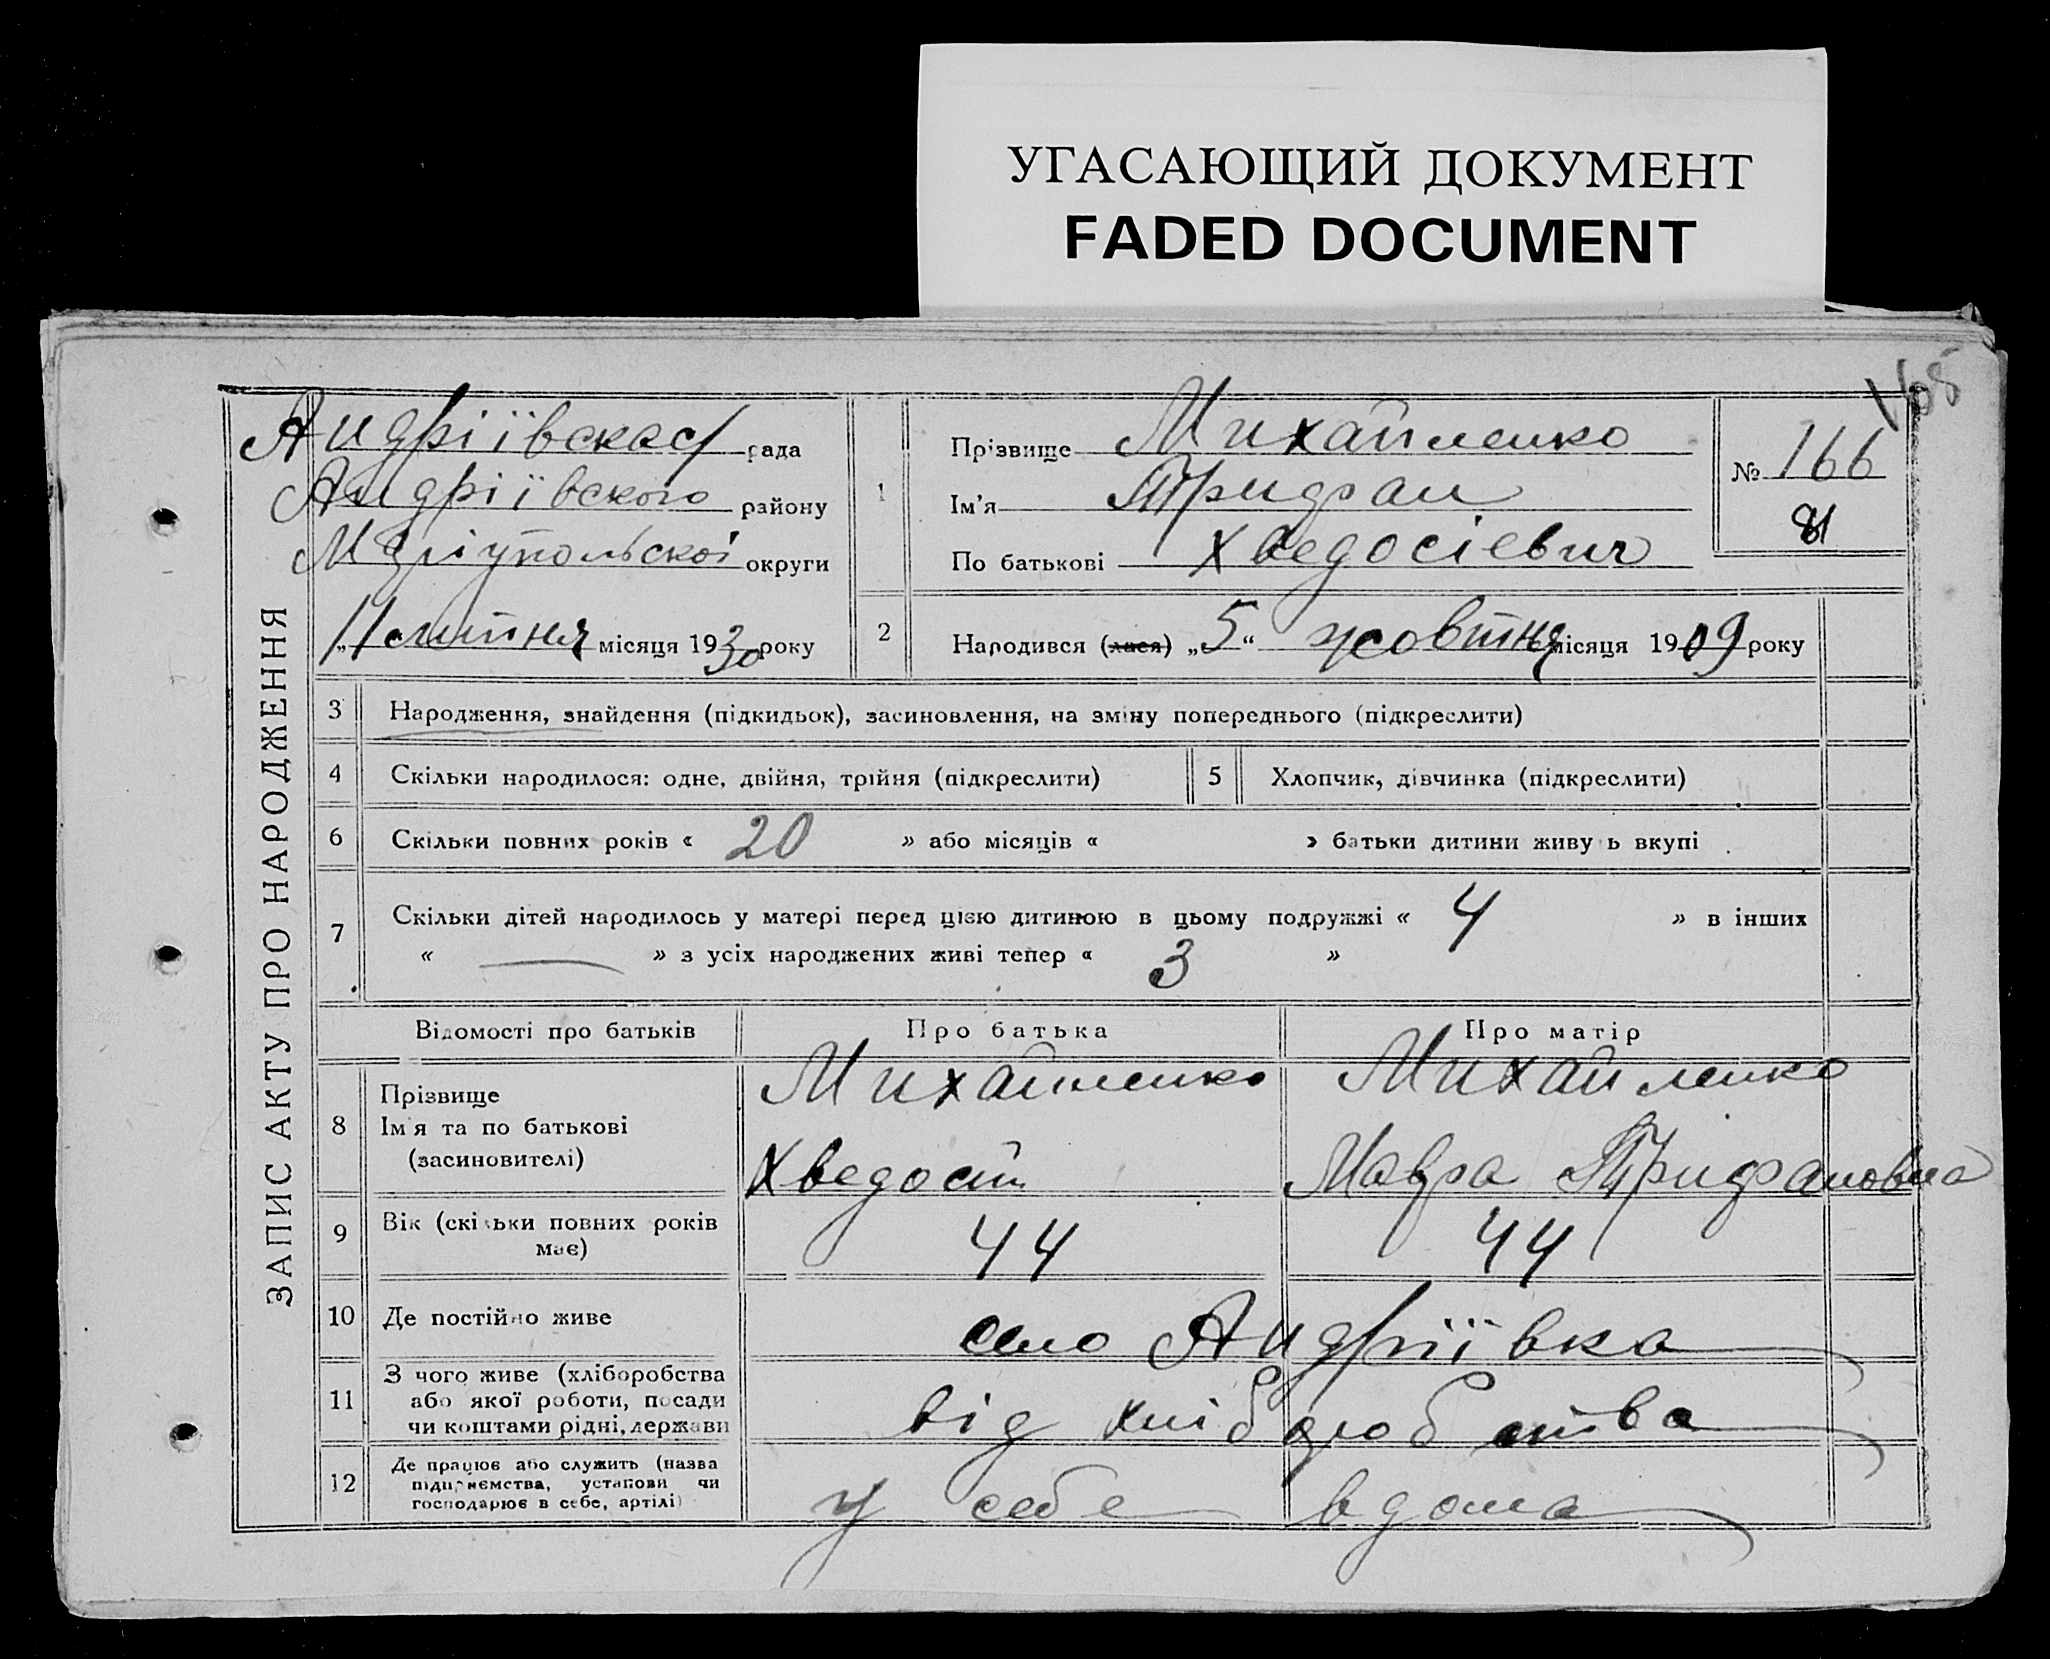 УГАСАЮЩИЙ ДОКУМЕНТ
FADED DOCUMENT
ЗАПИС АКТУ ПРО НАРОДЖЕННЯ
Андріївская рада
Андріївского району
Маріупольскоі округи
місяця 1930 року
1
Прізвище Михайленко
Ім'я Трифан
По батькові Хведосіевич
№ 166
81
2
Народився (лася) „5“ жовтня місяця 1909 року
3 Народження, знайдення (підкидьок), засиновлення, на зміну попереднього (підкреслити)
4 Скільки народилося: одне, двійня, трійня (підкреслити)
5 Хлопчик, дівчинка (підкреслити)
6 Скільки повних років « 20 » або місяців « » батьки дитини живуть вкупі
7 Скільки дітей народилось у матері перед цією дитиною в цьому подружжі « 4 » в інших
« — » з усіх народжених живі тепер « 3 »
Відомості про батьків
Про батька
Про матір
8 Прізвище
Ім'я та по батькові
(засиновителі)
Михайленко
Хведост
Михайленко
Мавра Трифановна
9 Вік (скільки повних років
має)
44
44
10 Де постійно живе
село Андріївка
11 З чого живе (хліборобства
або якої роботи, посади
чи коштами рідні, держави
від хліборобства
12 Де працює або служить (назва
підприємства, установи чи
господарює в себе, артілі)
у себе вдома